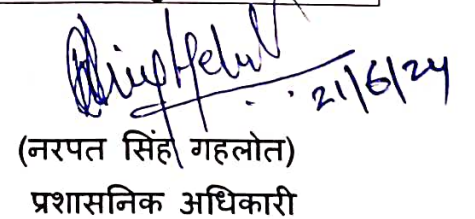 21/6/24
(नरपत सिंह गहलोत)
प्रशासनिक अधिकारी